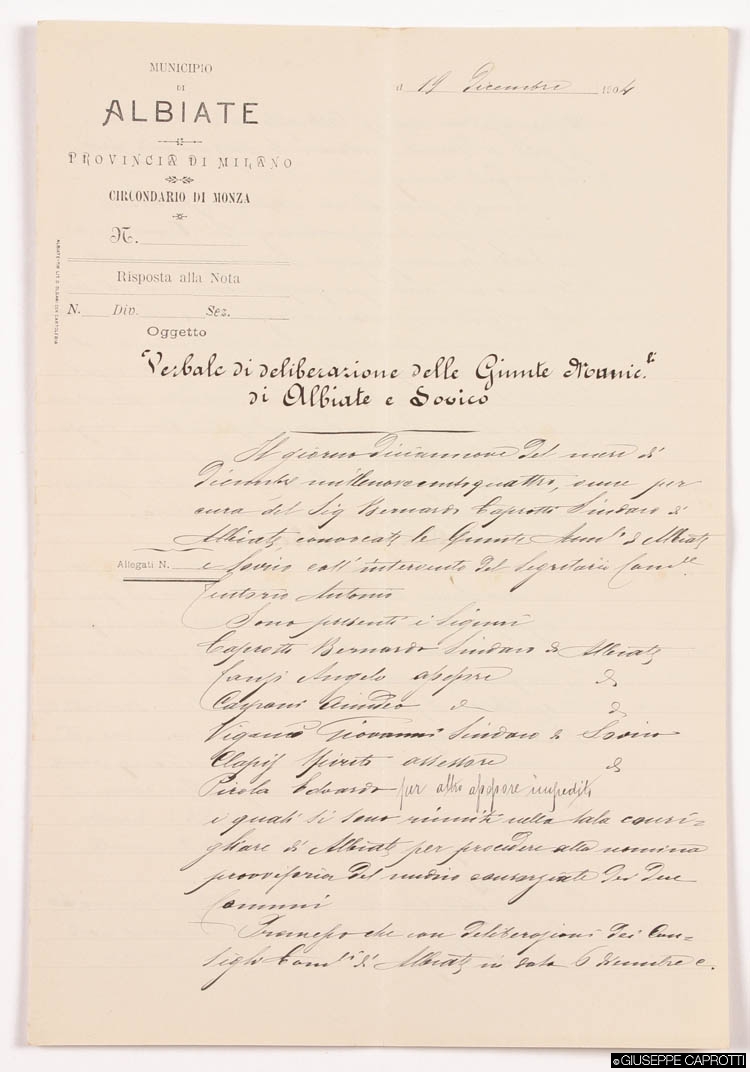 MUNICIPIO
DI
ALBIATE
PROVINCIA DI MILANO
CIRCONDARIO DI MONZA
N.
Risposta alla Nota
N. Div. Sez.
Oggetto
Allegati N.
19 Dicembre 1904
Verbale di deliberazione delle Giunte Munic.li
di Albiate e Sovico
Il giorno diciannove del mese di
Dicembre millenovecentoquattro, venne per
cura del Sig Bernardo Caprotti Sindaco di
Albiate, convocate le Giunte Munli di Albiate
e Sovico coll'intervento del Segretario Comle
Antonio
Sono presenti i Signori
Caprotti Bernardo Sindaco di Albiate
Angelo assessore di
di
Viganò Giovanni Sindaco di Sovico
Spirito assessore di
Pirola Edoardo per altro assessore impedito
i quali si sono riuniti nella sala consi-
gliare di Albiate per procedere alla nomina
provvisoria del medico consorziale dei due
Comuni
Premesso che con deliberazioni dei Con-
sigli Comli di Albiate in data 6 dicembre c.
©GIUSEPPE CAPROTTI